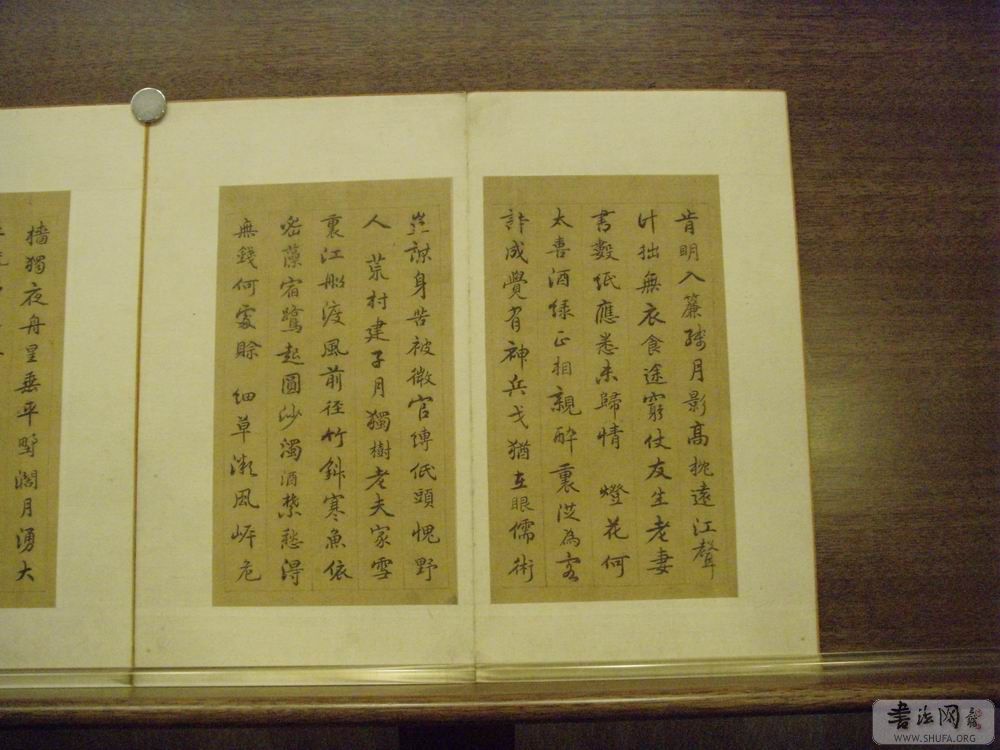 肯明入簾殘月影高枕遠江聲
計拙無衣食途窮仗友生老妻
書數紙應悉未歸情 燈花何
太喜酒綠正相親醉裏從為客
詩成覺有神兵戈猶在眼儒術
豈謀身苦被微官縛低頭愧野
人 荒村建子月獨樹老夫家雪
裏江船渡風前徑竹斜寒魚依
密藻宿鷺起圓沙濁酒禁愁得
無錢何處賒 細草微風岸危
檣獨夜舟星垂平野闊月湧大
書法网
WWW.SHUFA.ORG